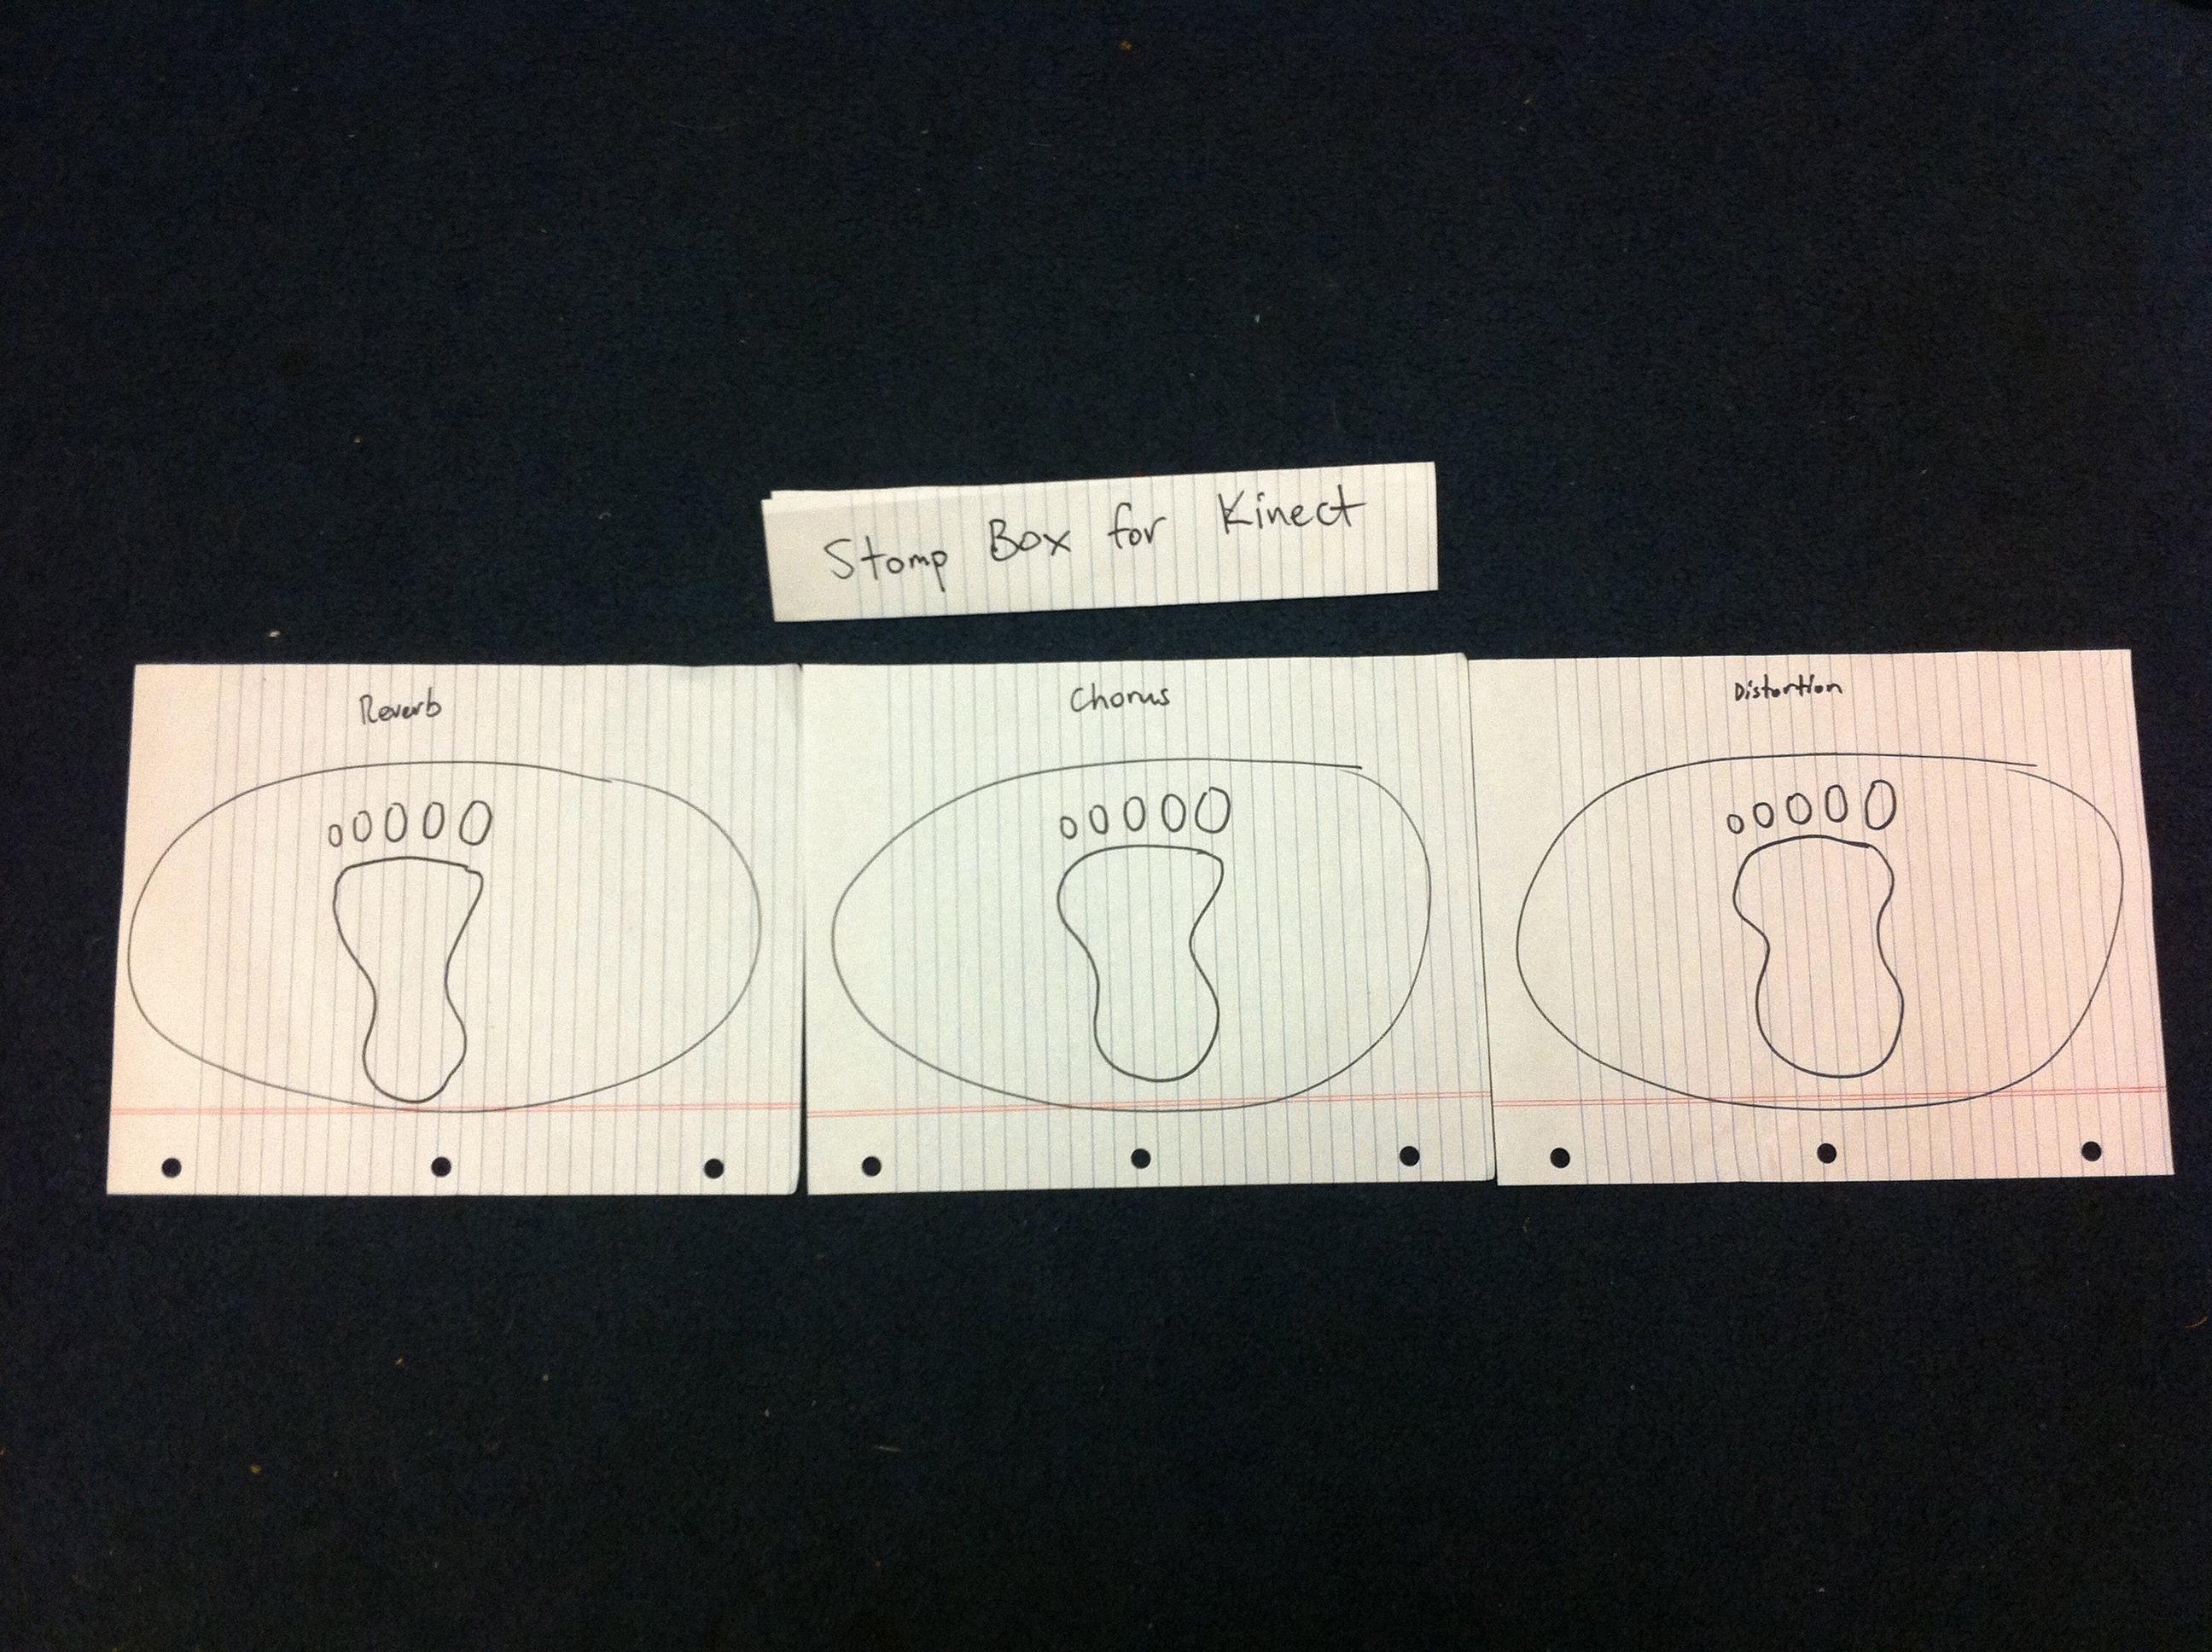 Stomp Box for Kinect
Reverb
Chorus
Distortion